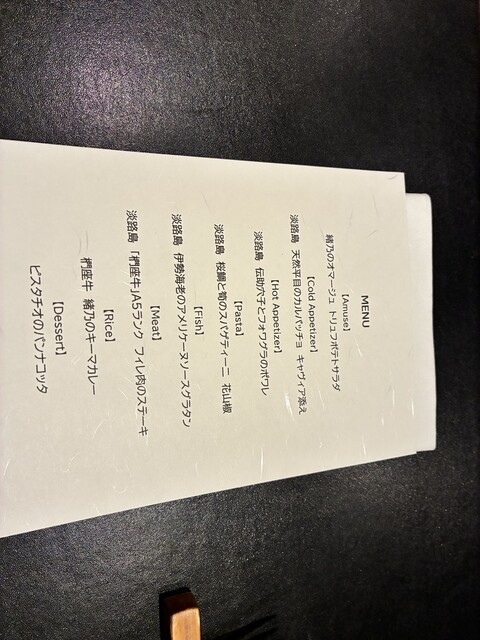 MENU
【Amuse】
緒乃のオマージュ トリュフポテトサラダ
【Cold Appetizer】
淡路島 天然平目のカルパッチョ キャヴィア添え
【Hot Appetizer】
淡路島 伝助穴子とフォワグラのポワレ
【Pasta】
淡路島 桜鯛と筍のスパゲティーニ 花山椒
【Fish】
淡路島 伊勢海老のアメリケーヌソースグラタン
【Meat】
淡路島 「椚座牛」A5ランク フィレ肉のステーキ
【Rice】
椚座牛 緒乃のキーマカレー
【Dessert】
ピスタチオのパンナコッタ